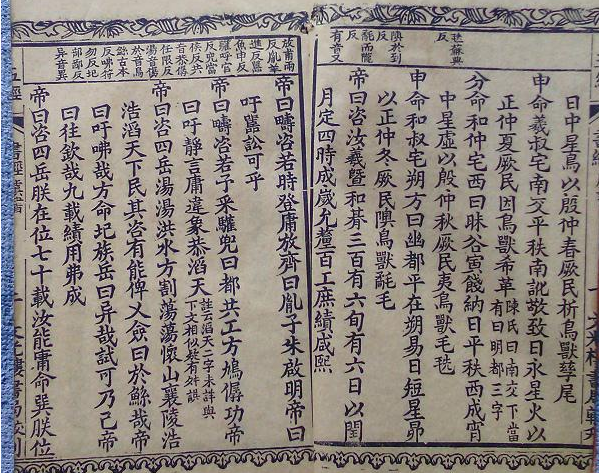 毨蘇典
反
隩於到
反
氄而隴
反
有音又
日中星鳥以殷仲春厥民析鳥獸孳尾
申命羲叔宅南交平秩南訛敬致日永星火以
正仲夏厥民因鳥獸希革
陳氏曰南交下當
有曰明都三字
分命和仲宅西曰昧谷寅餞納日平秩西成宵
中星虛以殷仲秋厥民夷鳥獸毛毨
申命和叔宅朔方曰幽都平在朔易日短星昴
以正仲冬厥民隩鳥獸氄毛
帝曰咨汝羲暨和朞三百有六旬有六日以閏
月定四時成歲允釐百工庶績咸熙
放甫兩
反胤羊
進反嚚
魚巾反
驩呼官
反兜當
侯反共
音恭僝
任限反
湯音傷
於音烏
鯀古本
反咈符
勿反圮
部鄙反
异音異
帝曰疇咨若時登庸放齊曰胤子朱啟明帝曰
吁嚚訟可乎
帝曰疇咨若予采驩兜曰都共工方鳩僝功帝
曰吁靜言庸違象恭滔天
註云滔天二字未詳與
下文相似疑有舛誤
帝曰咨四岳湯湯洪水方割蕩蕩懷山襄陵浩
浩滔天下民其咨有能俾乂僉曰於鯀哉帝
曰吁咈哉方命圮族岳曰异哉試可乃已帝
曰往欽哉九載績用弗成
帝曰咨四岳朕在位七十載汝能庸命巽朕位
五經
書經